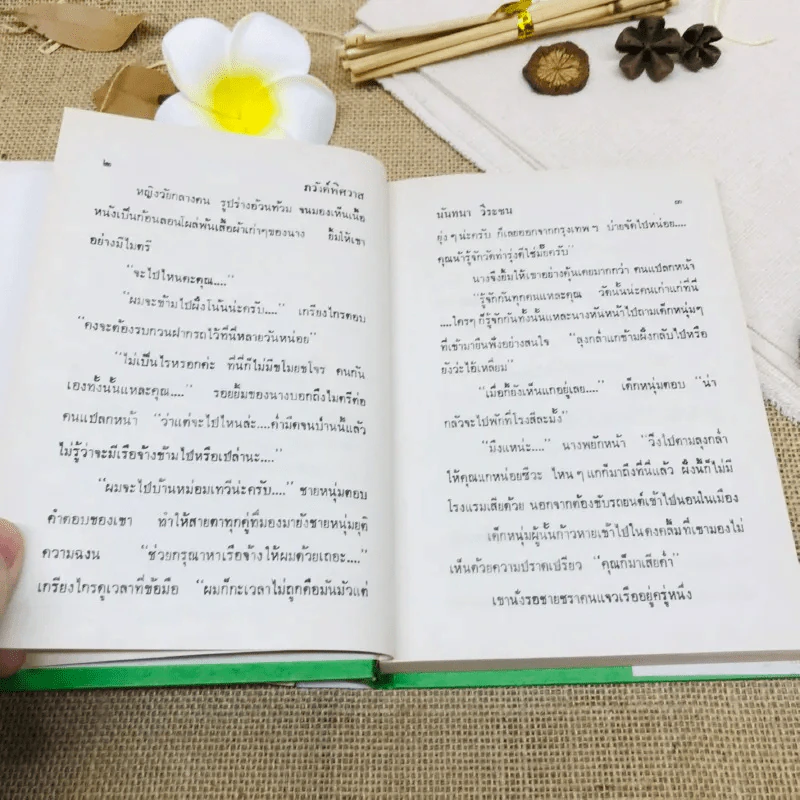 ๒
ภวังค์พิศวาส
หญิงวัยกลางคน รูปร่างอ้วนท้วม จนมองเห็นเนื้อ
หนังเป็นก้อนลอนโผล่พ้นเสื้อผ้าเก่าๆของนาง ยิ้มให้เขา
อย่างมีไมตรี
“จะไปไหนคะคุณ....”
“ผมจะข้ามไปฝั่งโน้นน่ะครับ....” เกรียงไกรตอบ
“คงจะต้องรบกวนฝากรถไว้ที่นี่หลายวันหน่อย”
“ไม่เป็นไรหรอกค่ะ ที่นี่ก็ไม่มีขโมยขโจร คนกัน
เองทั้งนั้นแหละคุณ....” รอยยิ้มของนางบอกถึงไมตรีต่อ
คนแปลกหน้า “ว่าแต่จะไปไหนล่ะ....ค่ำมืดจนป่านนี้แล้ว
ไม่รู้ว่าจะมีเรือจ้างข้ามไปหรือเปล่านะ....”
“ผมจะไปบ้านหม่อมเทวีน่ะครับ....” ชายหนุ่มตอบ
คำตอบของเขา ทำให้สายตาทุกคู่ที่มองมายังชายหนุ่มยุติ
ความฉงน “ช่วยกรุณาหาเรือจ้างให้ผมด้วยเถอะ....”
เกรียงไกรดูเวลาที่ข้อมือ “ผมก็กะเวลาไม่ถูกคือมันมัวแต่
มันทนา วีระชน
๓
ยุ่งๆน่ะครับ ก็เลยออกจากกรุงเทพฯ บ่ายจัดไปหน่อย....
คุณน้ารู้จักวัดท่ารุ้งดีใช่มั้ยครับ”
นางจึงยิ้มให้เขาอย่างคุ้นเคยมากกว่า คนแปลกหน้า
“รู้จักกันทุกคนแหละคุณ วัดนั้นน่ะคนเก่าแก่ที่นี่
....ใครๆ ก็รู้จักกันทั้งนั้นแหละนางหันหน้าไปถามเด็กหนุ่มๆ
ที่เข้ามายืนฟังอย่างสนใจ “ลุงกล่ำแกข้ามฝั่งกลับไปหรือ
ยังวะไอ้เหลี่ยม”
“เมื่อกี้ยังเห็นแกอยู่เลย....” เด็กหนุ่มตอบ “น่า
กลัวจะไปพักที่โรงสีละมั้ง”
“มึงแหน่ะ....” นางพยักหน้า “วิ่งไปตามลุงกล่ำ
ให้คุณแกหน่อยซีวะ ไหนๆแกก็มาถึงที่นี่แล้ว ฝั่งนี้ก็ไม่มี
โรงแรมเสียด้วย นอกจากต้องขับรถยนต์เข้าไปนอนในเมือง
เด็กหนุ่มผู้นั้นก้าวหายเข้าไปในดงคลึ้มที่เขามองไม่
เห็นด้วยความปราดเปรียว “คุณก็มาเสียค่ำ”
เขานั่งรอชายชราคนแจวเรืออยู่ครู่หนึ่ง